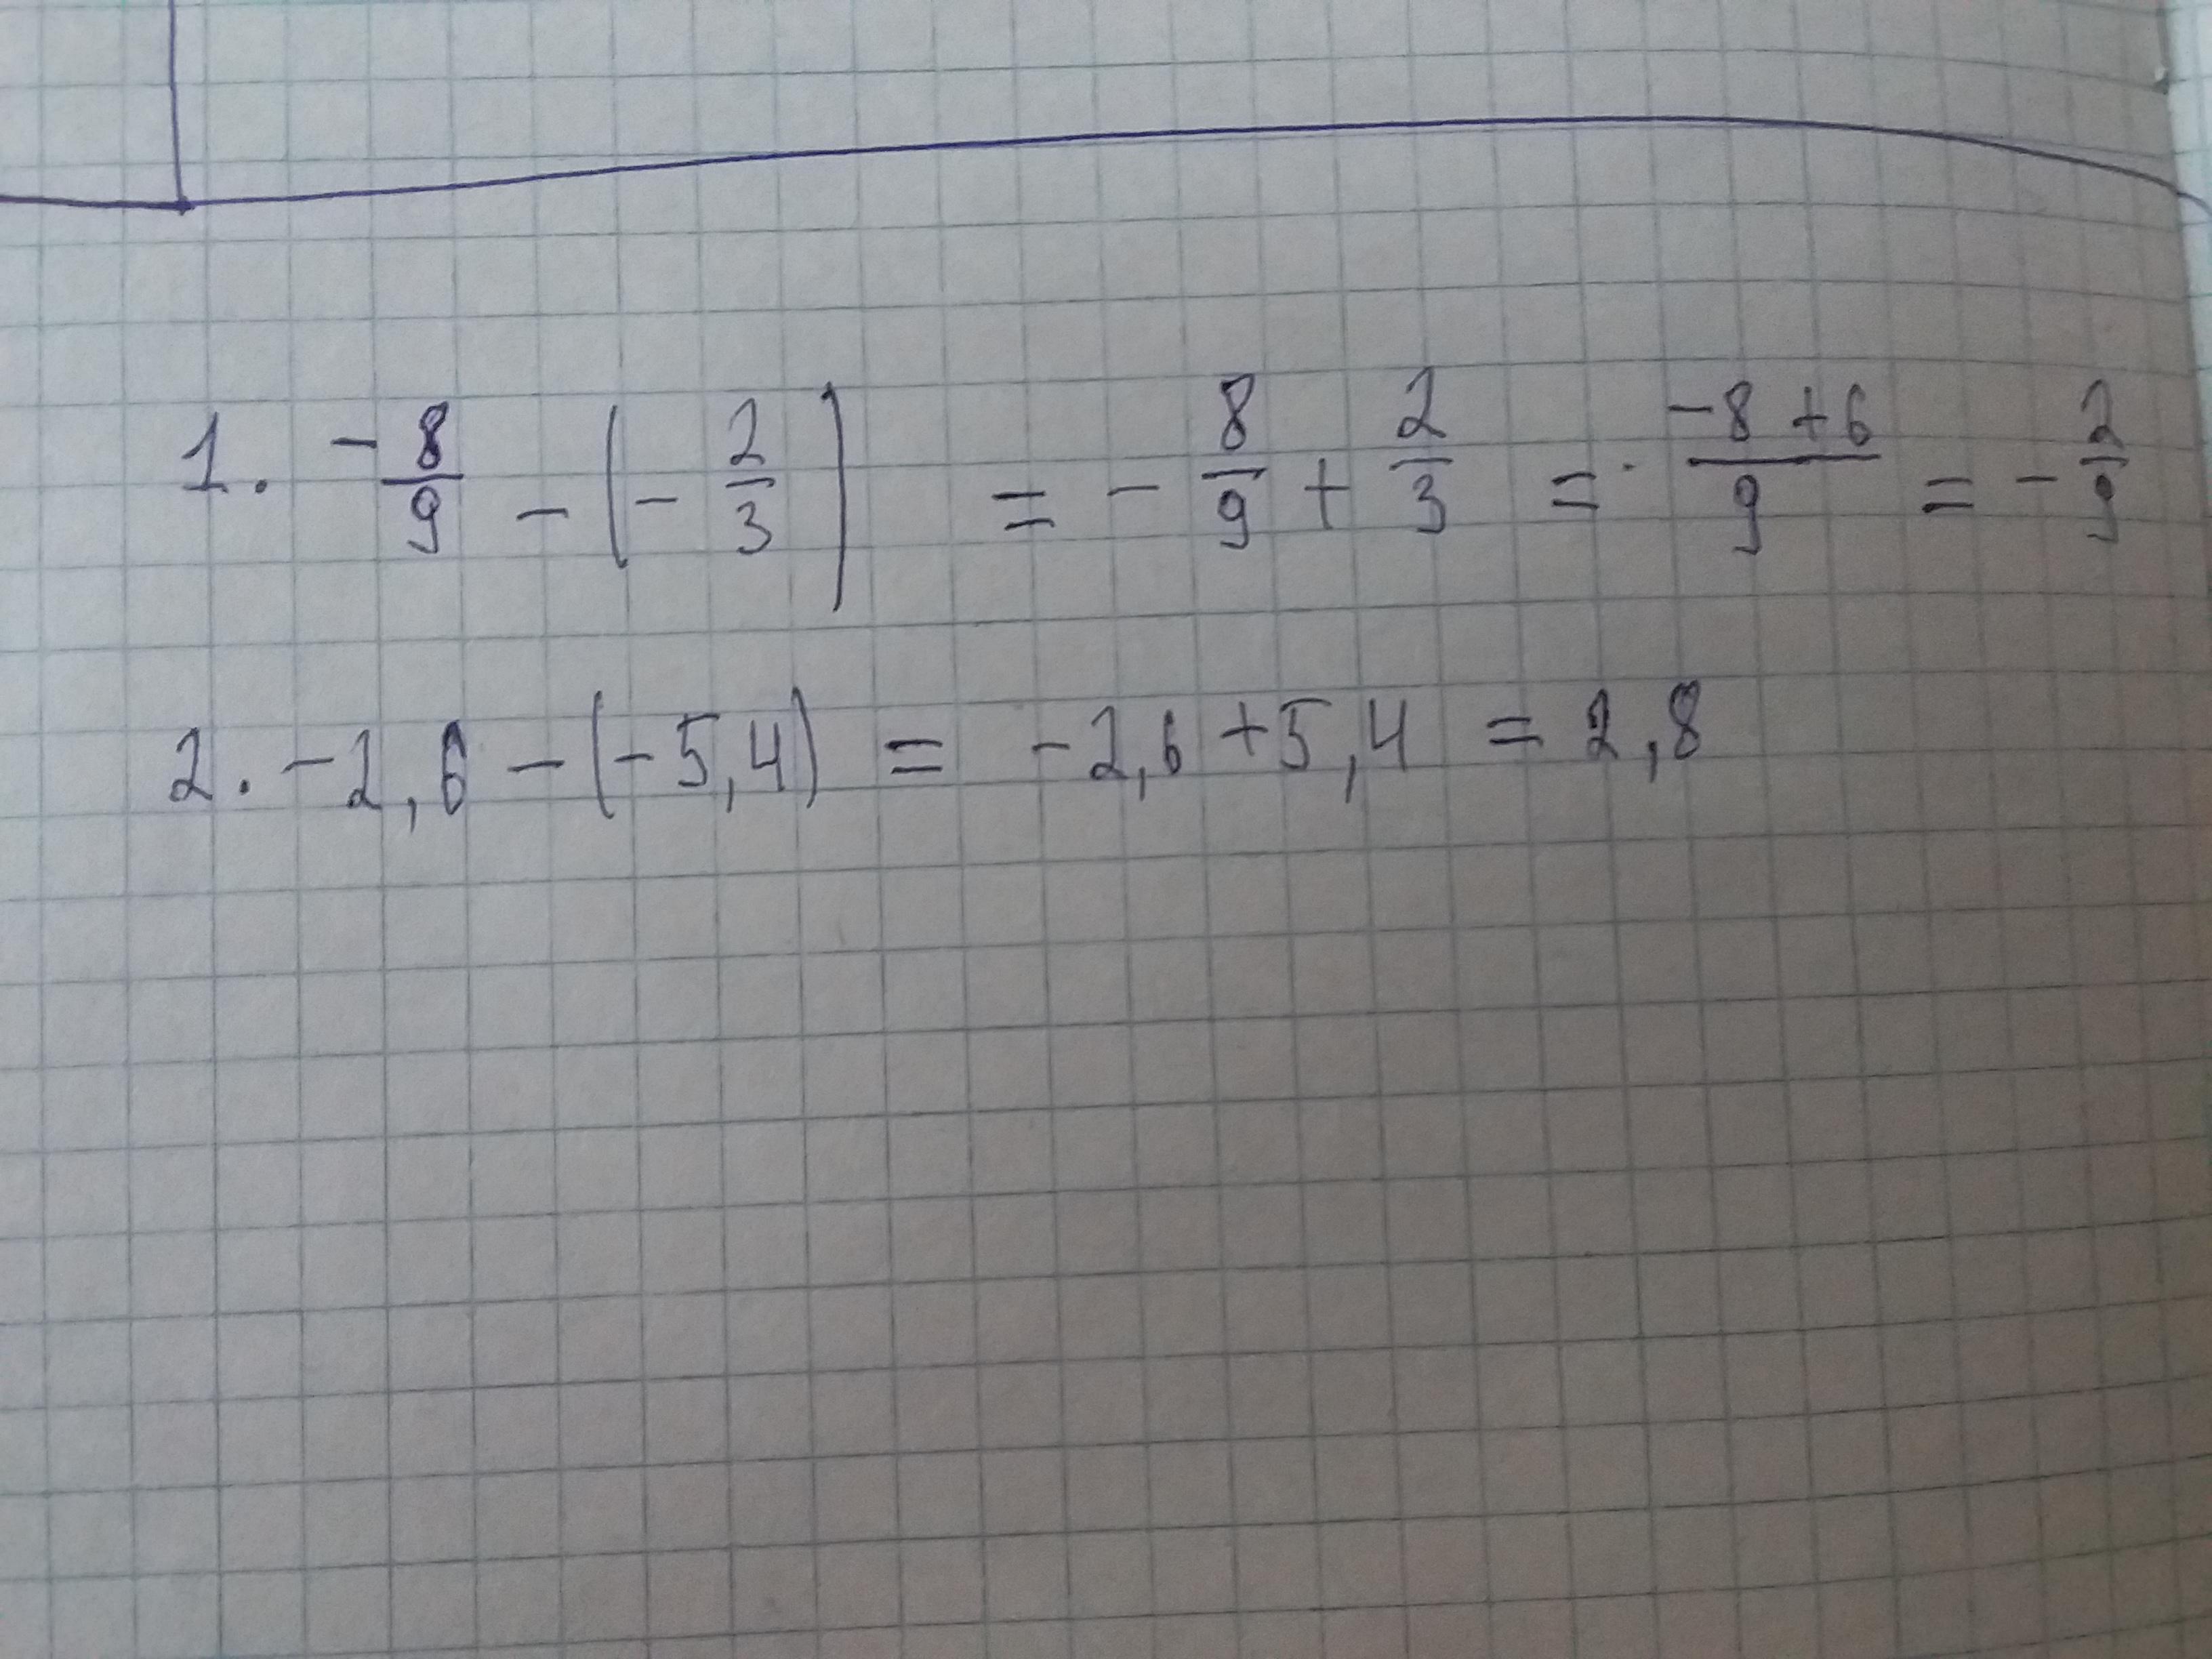 1. -8/9 - (-2/3) = -8/9 + 2/3 = -8+6/9 = -2/9
2. -2,6 - (-5,4) = -2,6 + 5,4 = 2,8